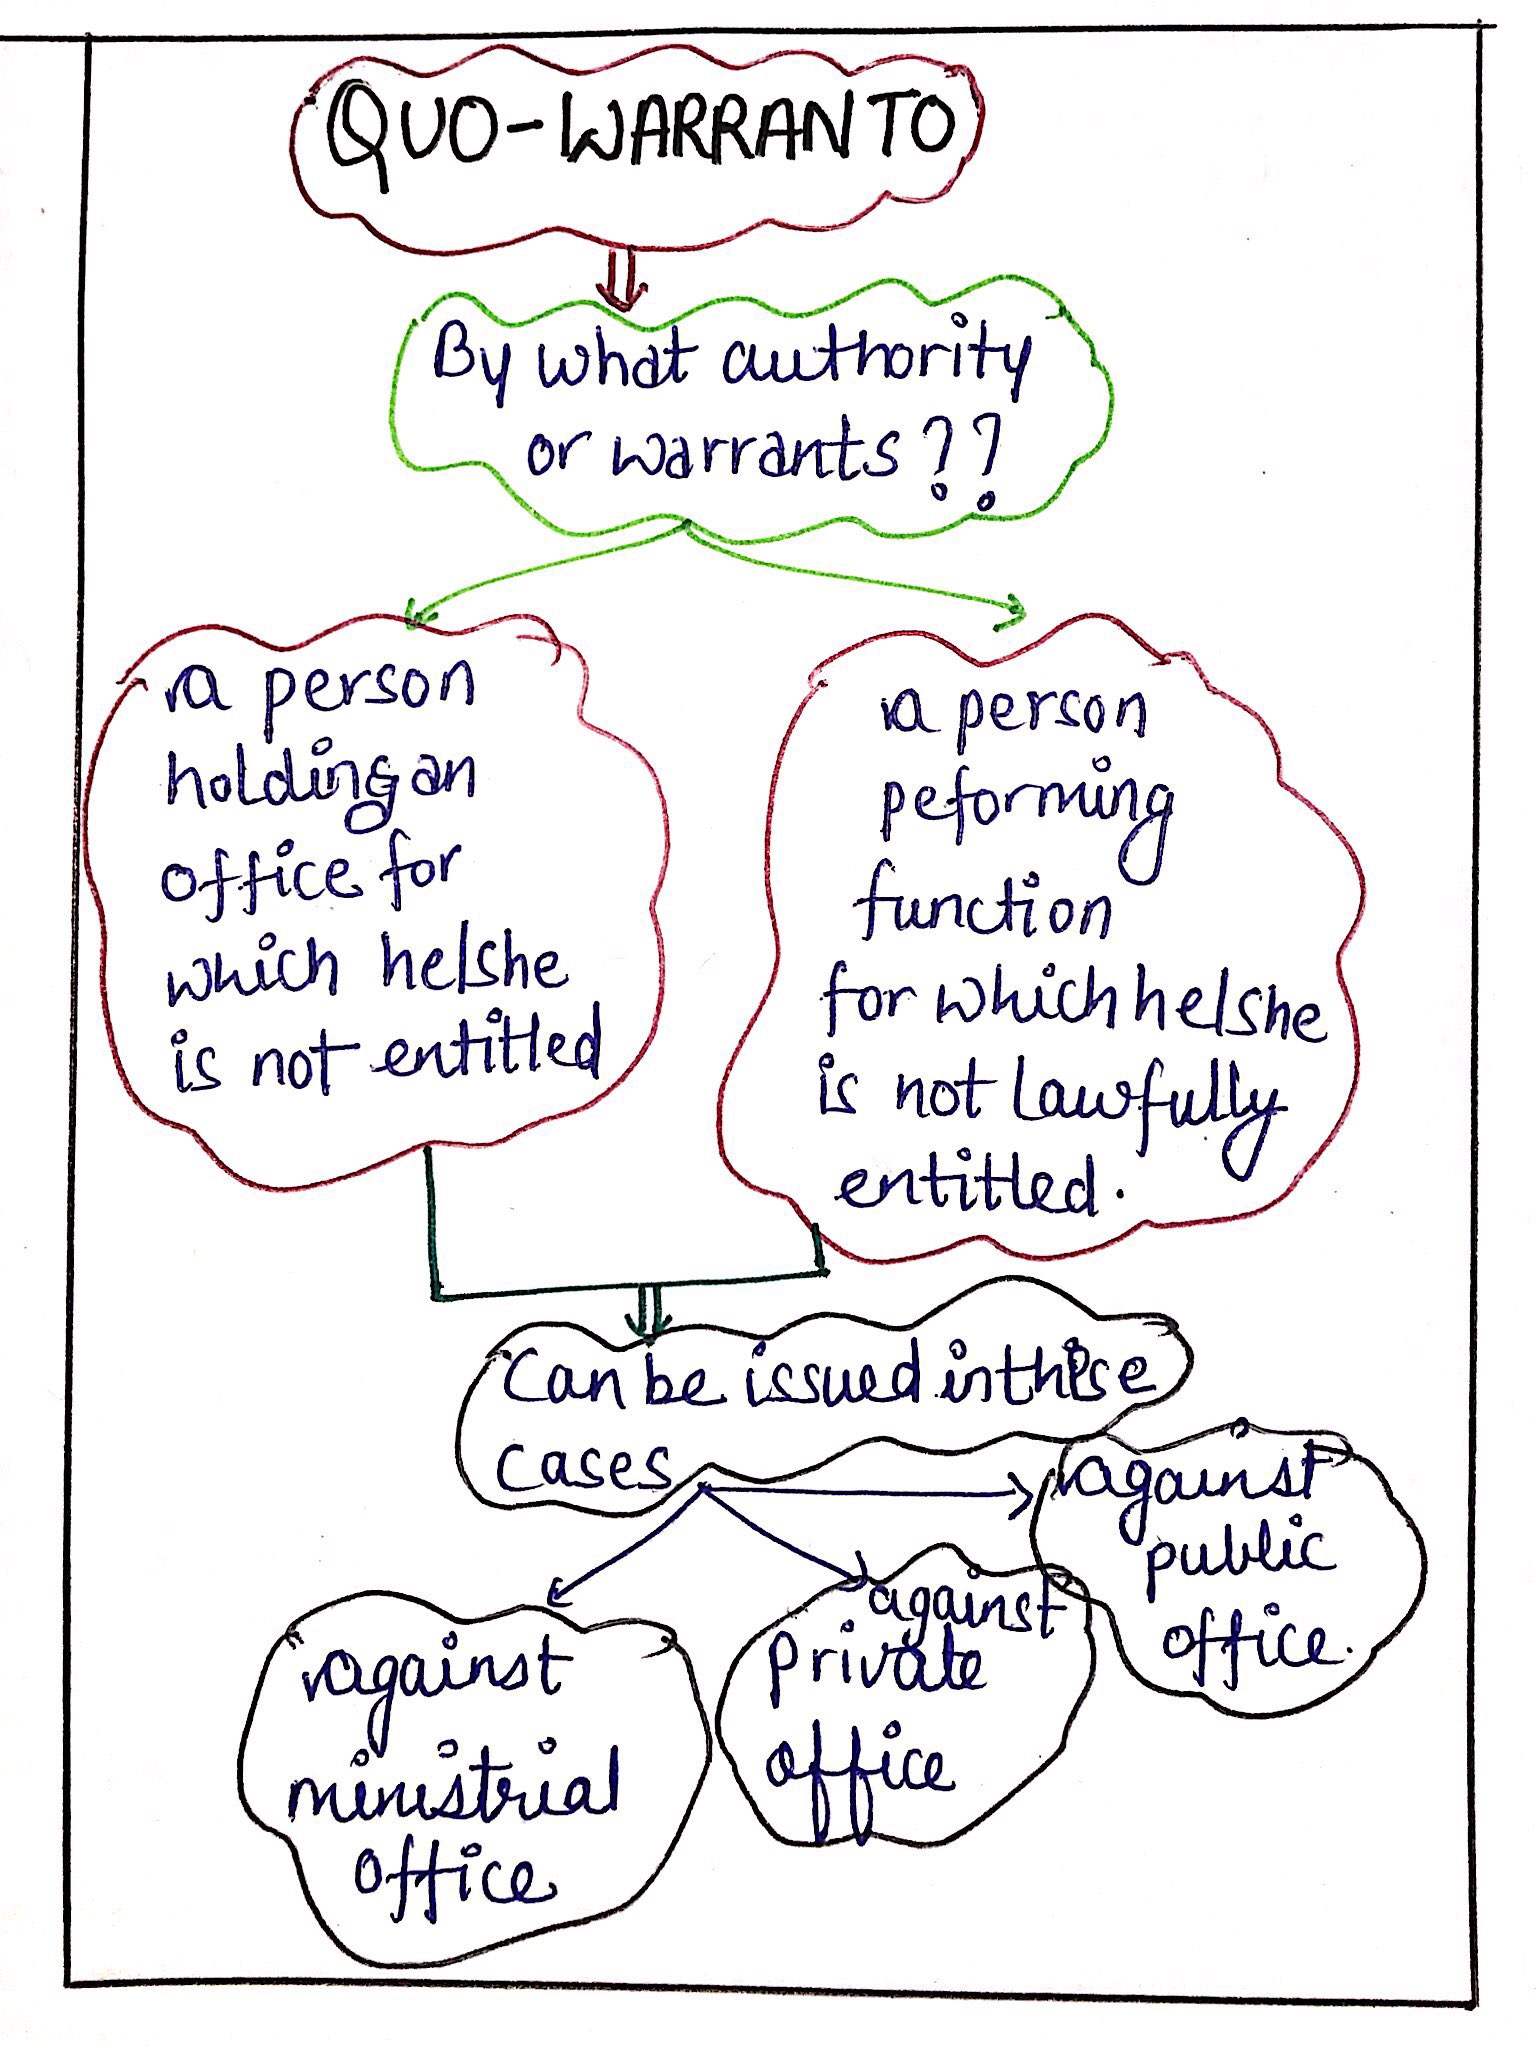 QUO-WARRANTO
By what authority
or warrants??
a person
holding an
office for
which he/she
is not entitled
a person
peforming
function
for which he/she
is not lawfully
entitled.
Can be issued in these
cases
against
public
office.
against
private
office
against
ministrial
office